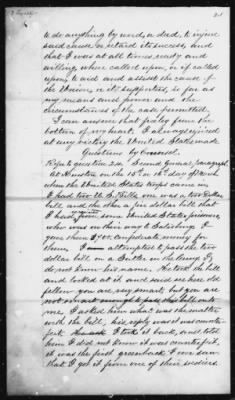 to do anything by word, or deed, to injure
said cause or retard its success, and
that I was at all times ready and
willing when called upon, or if called
upon, to aid and assist the cause of
the Union, or its supporters, so far as
my means and power and the
circumstances of the case permitted.
I can answer that freely from the
bottom of my heart. I always rejoiced
at any victory the United States made
Questions by Counsel.
Refer to question 24. Second General paragraph
At Houston on the 15th or 16th day of
when the United States troops came in
I had two U.S. bills one was a two dollar
bill and the other a five dollar bill that
I had from some United States prisoners
who were on their way to Salisbury. I
gave them $700. Confederate money for
them. I attempted to pass the two
dollar bill on a Sutler in the army. I
do not know his name. He took the bill
and looked at it and said see here old
fellow you are very smart but you are
not smart enough to pass this bill onto
me. I asked him what was the matter
with the bill, his reply was it was counter-
feit. I took it back, and told
him I did not know it was counterfeit.
it was the first greenback I ever saw
that I got it from one of their soldiers